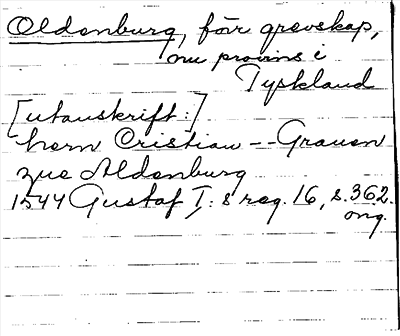 Oldenburg, förr grevskap,
nu provins i
Tyskland
[utanskrift:]
hern Cristian -- Grauen
zue Aldenburg
1544 Gustaf I:s reg. 16, s. 362.
orig.